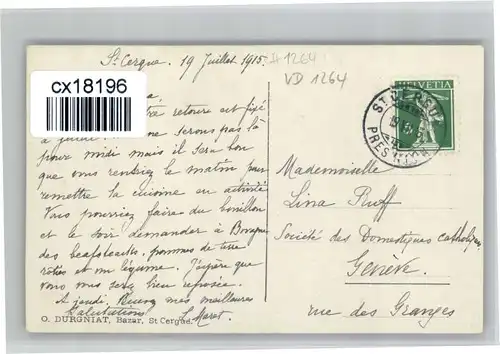 St Cergue, 19 Juillet 1915.
# 1264
VD 1264
cx18196
HELVETIA
retour est fixé
à jeudi. serons pas là
pour midi mais il sera bon
que vous rentriez le matin pour
remettre la cuisine en activité
Vous pourriez faire du bouillon
et le soir demander à
des beefsteacks, pommes de terre
rôties et un légume. J'espère que
vous vous serez bien reposée.
A jeudi. mes meilleures
salutations
O. DURGNIAT, Bazar, St Cergue.
Mademoiselle
Lina Ruff
Société des Domestiques catholiques
Genève
rue des Granges